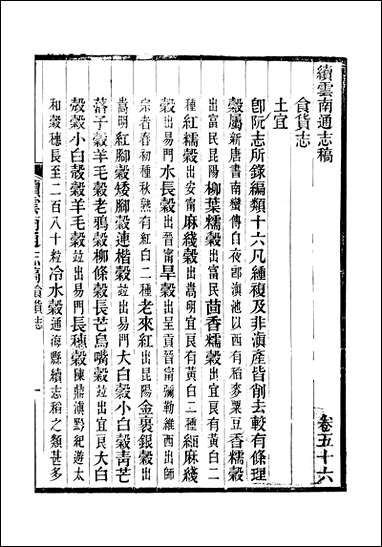 續雲南通志稿　卷五十六
食貨志
土宜
卽阮志所錄編類十六凡種複及非滇產皆削去較有條理
穀屬新唐書南蠻傳自夜郎滇池以西有稻麥粟豆香糯穀
出富民昆陽柳葉糯穀出富民茴香糯穀出宜良有黃白二
種紅糯穀出安甯麻綫穀出嵩明宜良有黃白二種緬麻綫
穀出易門水長穀出晉甯旱穀出呈貢晉甯彌勒維西出師
宗者春初種秋熟有紅白二種老來紅出昆陽金裹銀穀出
嵩明紅腳穀矮腳穀連楷穀竝出易門大白穀小白穀靑芒
穀落子穀羊毛穀老鴉穀柳條穀長芒烏嘴穀竝出宜良大白
殼穀小白殼穀羊毛穀竝出易門長穗穀陳鼎滇黔紀遊太
和穀穗長至二百八十粒冷水穀通海縣續志稻之類甚多
續雲南通志稿食貨志　一